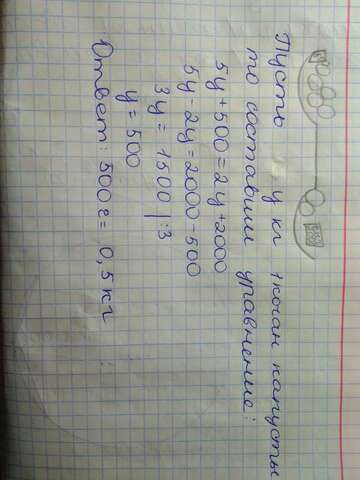 Пусть у кг 1 кочан капусты
то составим уравнение:
5у + 500 = 2у + 2000
5у - 2у = 2000 - 500
3у = 1500 | :3
у = 500
Ответ: 500 г = 0,5 кг